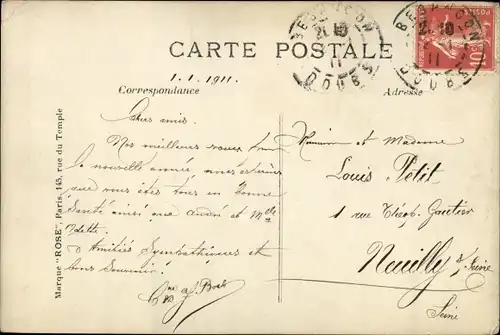 CARTE POSTALE
BESANÇON
DOUBS
1.1.1911.
Correspondance
Adresse
Chers amis.
Nos meilleurs vœux pour
la nouvelle année nous
que vous êtes tous en bonne
santé ainsi que André et Melle
Odette.
Amitiés Sympathiques et
bons Souvenirs.
Monsieur et Madame
Louis Petit
1 rue Théop. Gautier
Neuilly s/ Seine
Seine
Marque "ROSE", Paris, 145, rue du Temple